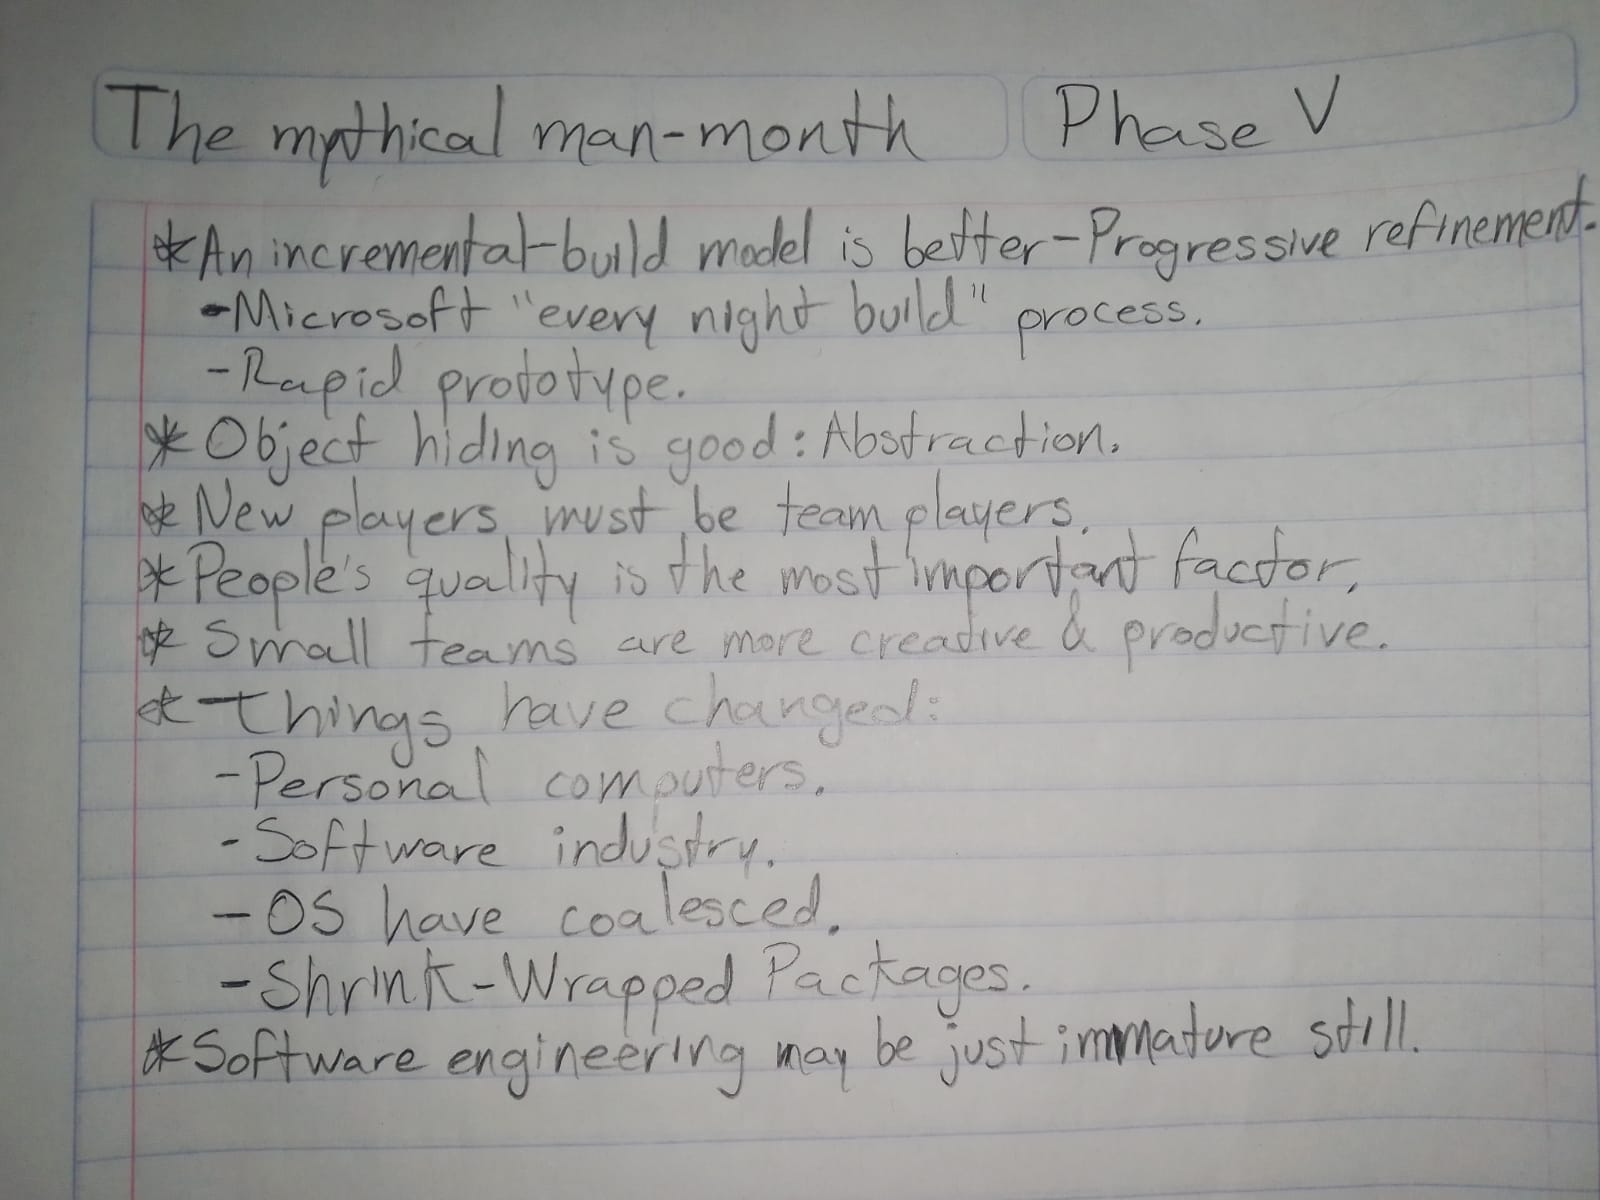 The mythical man-month Phase V
*An incremental-build model is better-Progressive refinement.
-Microsoft "every night build" process.
-Rapid prototype.
*Object hiding is good: Abstraction.
*New players must be team players.
*People's quality is the most important factor,
*Small teams are more creative & productive.
*Things have changed:
-Personal computers.
-Software industry.
-OS have coalesced.
-Shrink-Wrapped Packages.
*Software engineering may be just immature still.